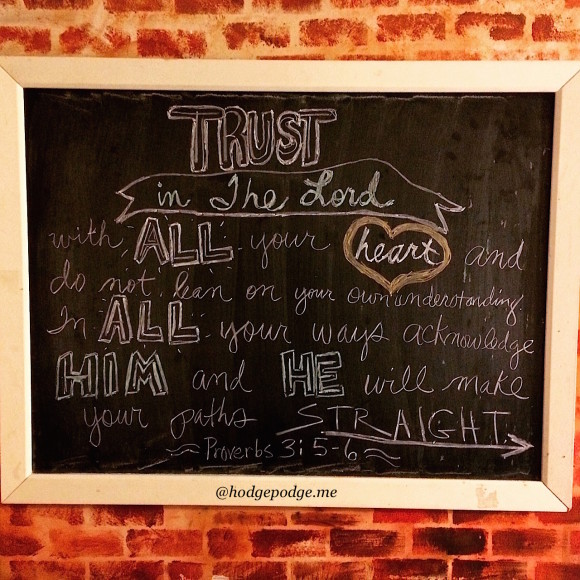 TRUST
in The Lord
with ALL your heart and
do not lean on your own understanding.
In ALL your ways acknowledge
HIM and HE will make
your paths STRAIGHT.
~ Proverbs 3:5-6 ~
@hodgepodge.me